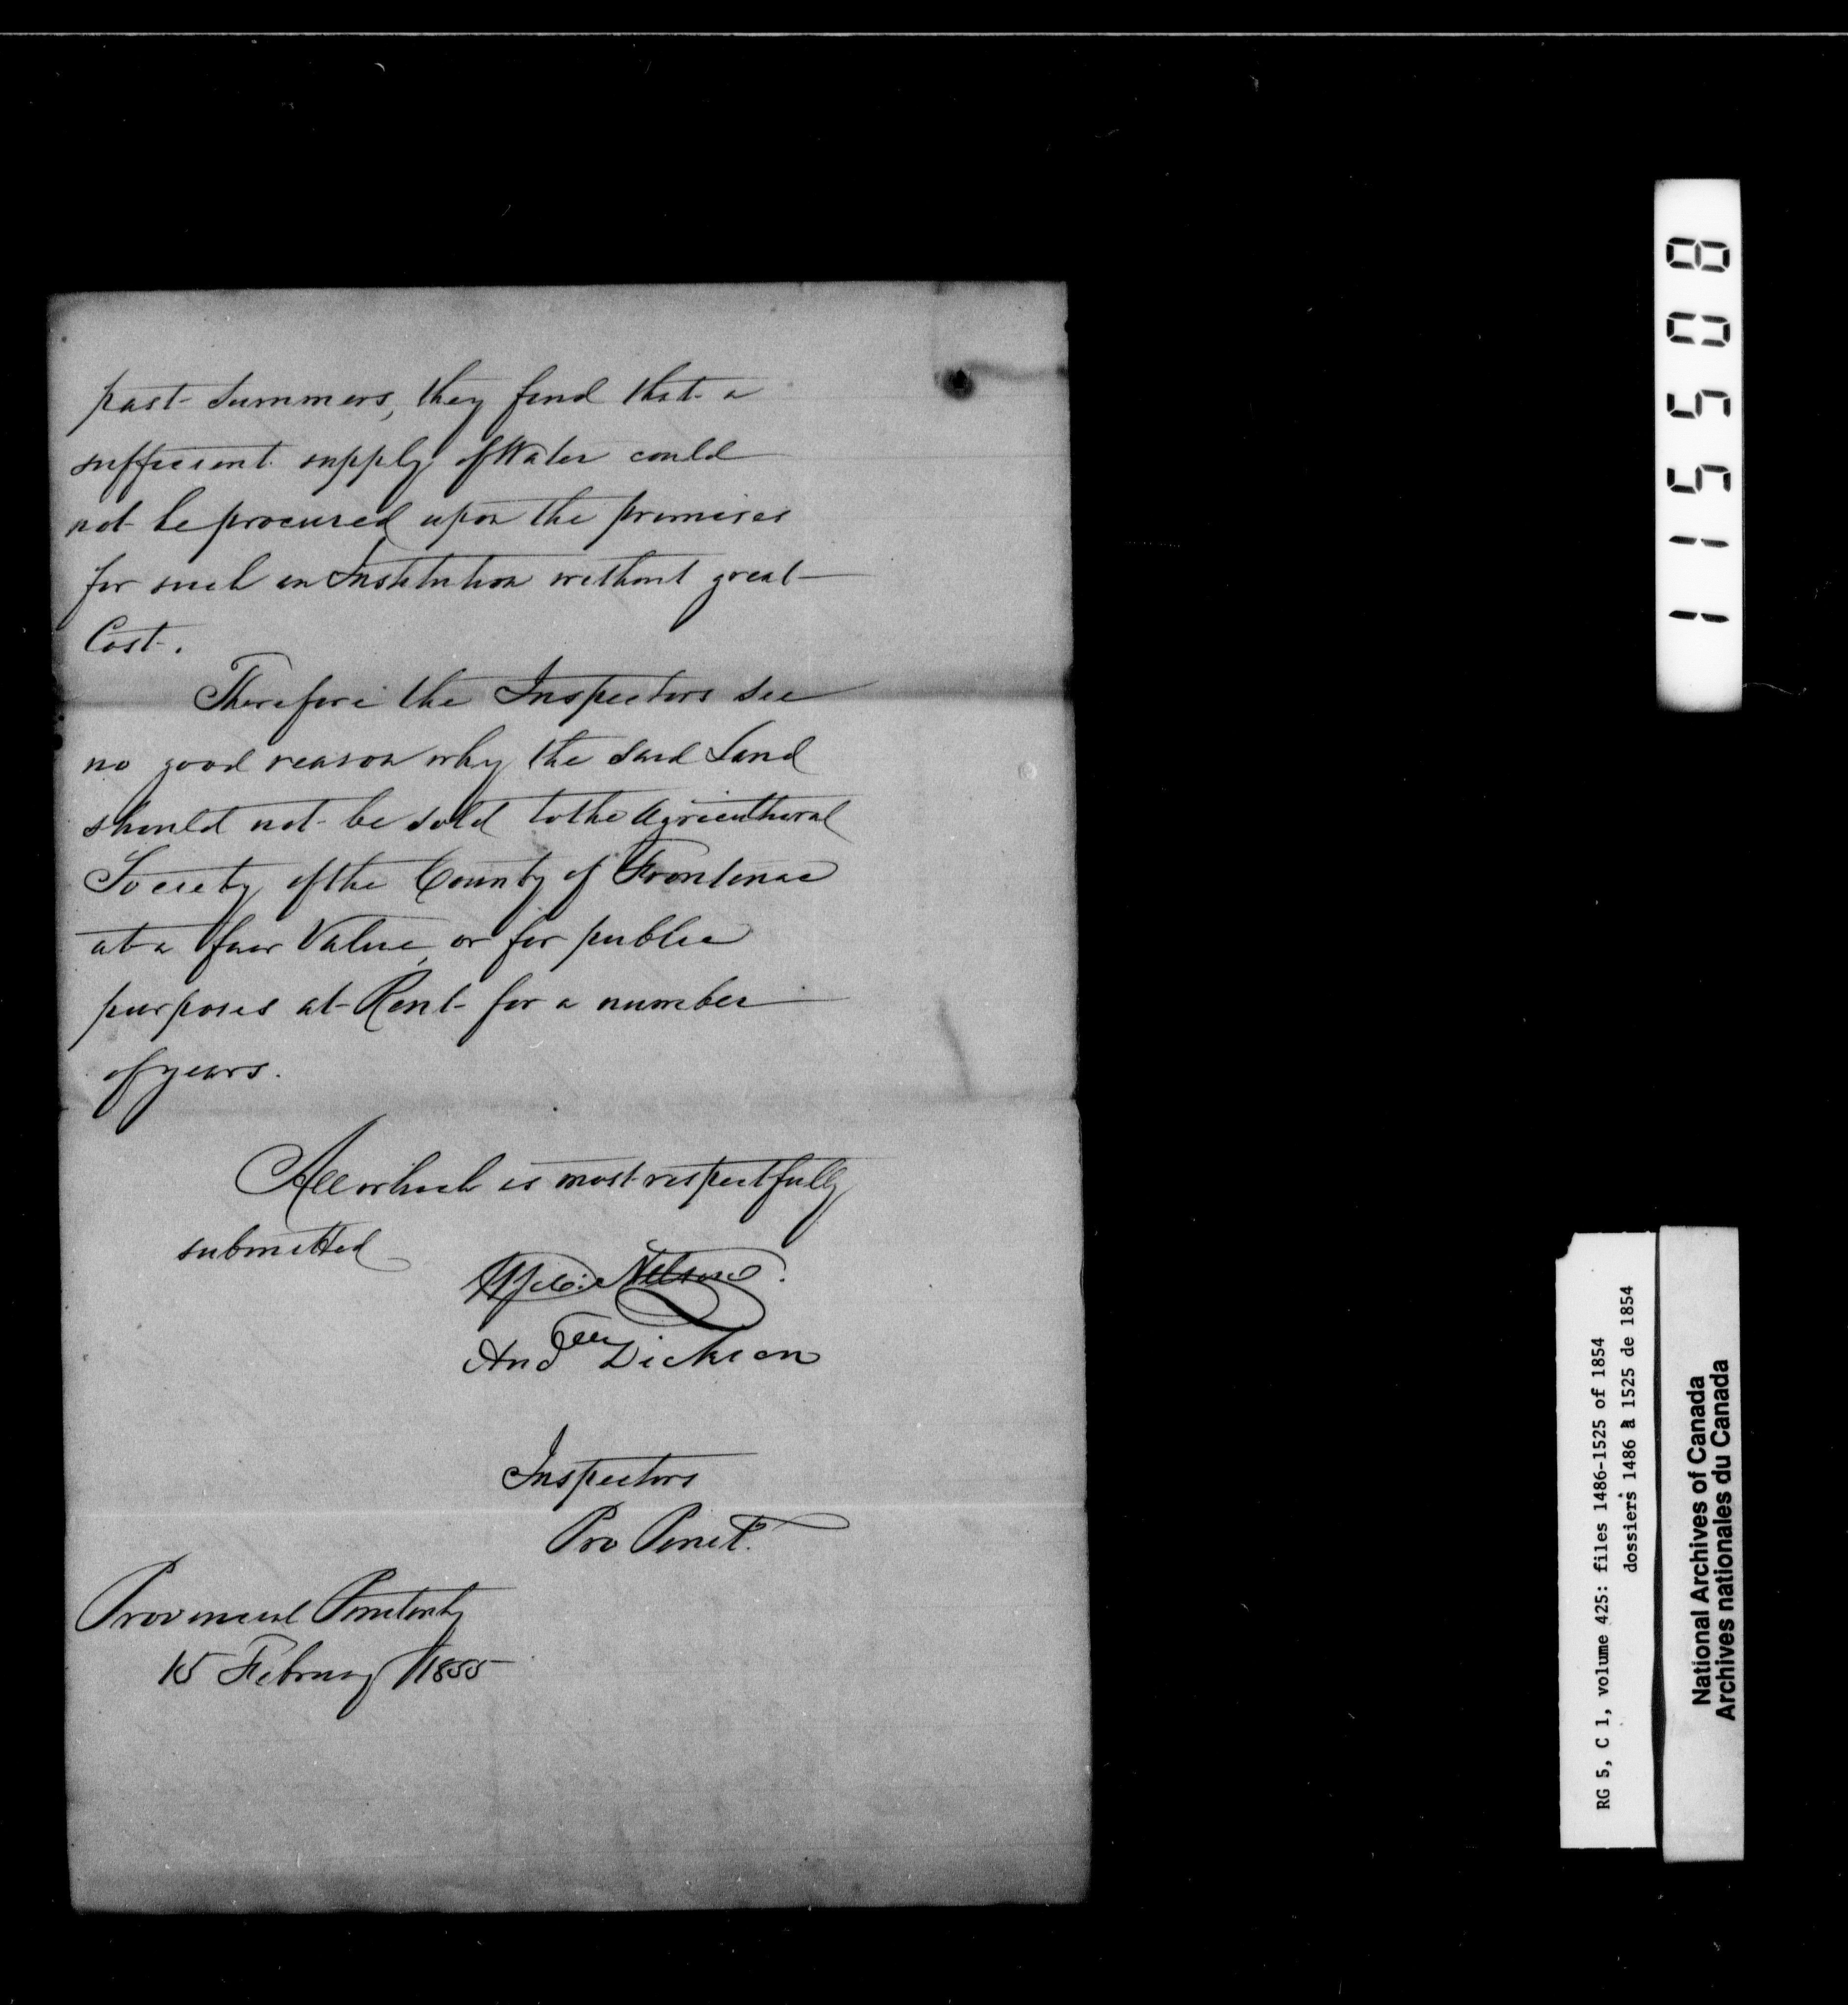 past Summers, they find that a
sufficient supply of Water could
not be procured upon the premises
for such an Institution without great
Cost.
Therefore the Inspectors see
no good reason why the said Land
should not be sold to the Agricultural
Society of the County of Frontenac
at a fair Value, or for public
purposes at Rent for a number
of years.
All which is most respectfully
submitted
Nelson
Andrew Dickson
Inspectors
Pro Penit.
Provincial Penitenty
15 February 1855
115508
RG 5, C 1, volume 425: files 1486-1525 of 1854
dossiers 1486 à 1525 de 1854
National Archives of Canada
Archives nationales du Canada